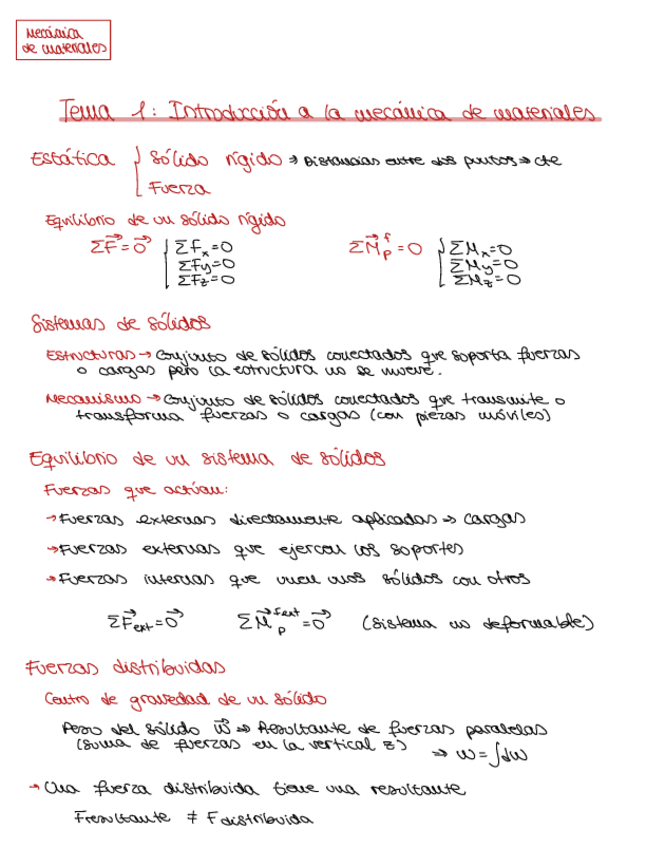 Mecánica
de materiales
Tema 1: Introducción a la mecánica de materiales
Estática { Sólido rígido → Distancias entre dos puntos → cte
Fuerza
Equilibrio de un sólido rígido
ΣF⃗ = 0⃗ { ΣFx=0 ΣM⃗p^f = 0 { ΣMx=0
ΣFy=0 ΣMy=0
ΣFz=0 ΣMz=0
Sistemas de sólidos
Estructuras → Conjunto de sólidos conectados que soporta fuerzas
o cargas pero la estructura no se mueve.
Mecanismo → Conjunto de sólidos conectados que transmite o
transforma fuerzas o cargas (con piezas móviles)
Equilibrio de un sistema de sólidos
Fuerzas que actúan:
→ Fuerzas externas directamente aplicadas → cargas
→ Fuerzas externas que ejercen los soportes
→ Fuerzas internas que unen unos sólidos con otros
ΣF⃗ext = 0⃗ ΣM⃗p^Fext = 0⃗ (Sistema no deformable)
Fuerzas distribuidas
Centro de gravedad de un sólido
Peso del sólido w⃗ → Resultante de fuerzas paralelas
(suma de fuerzas en la vertical z) → w = ∫dw
→ Una fuerza distribuida tiene una resultante
Fresultante ≠ Fdistribuida